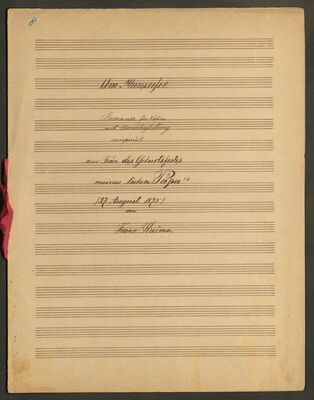 8
Am Murufer
Romanze für Violine
mit Clavierbegleitung
componirt
zur Feier des Geburtsfestes
meines lieben Papa's
(27. August 1875)
von
Franz